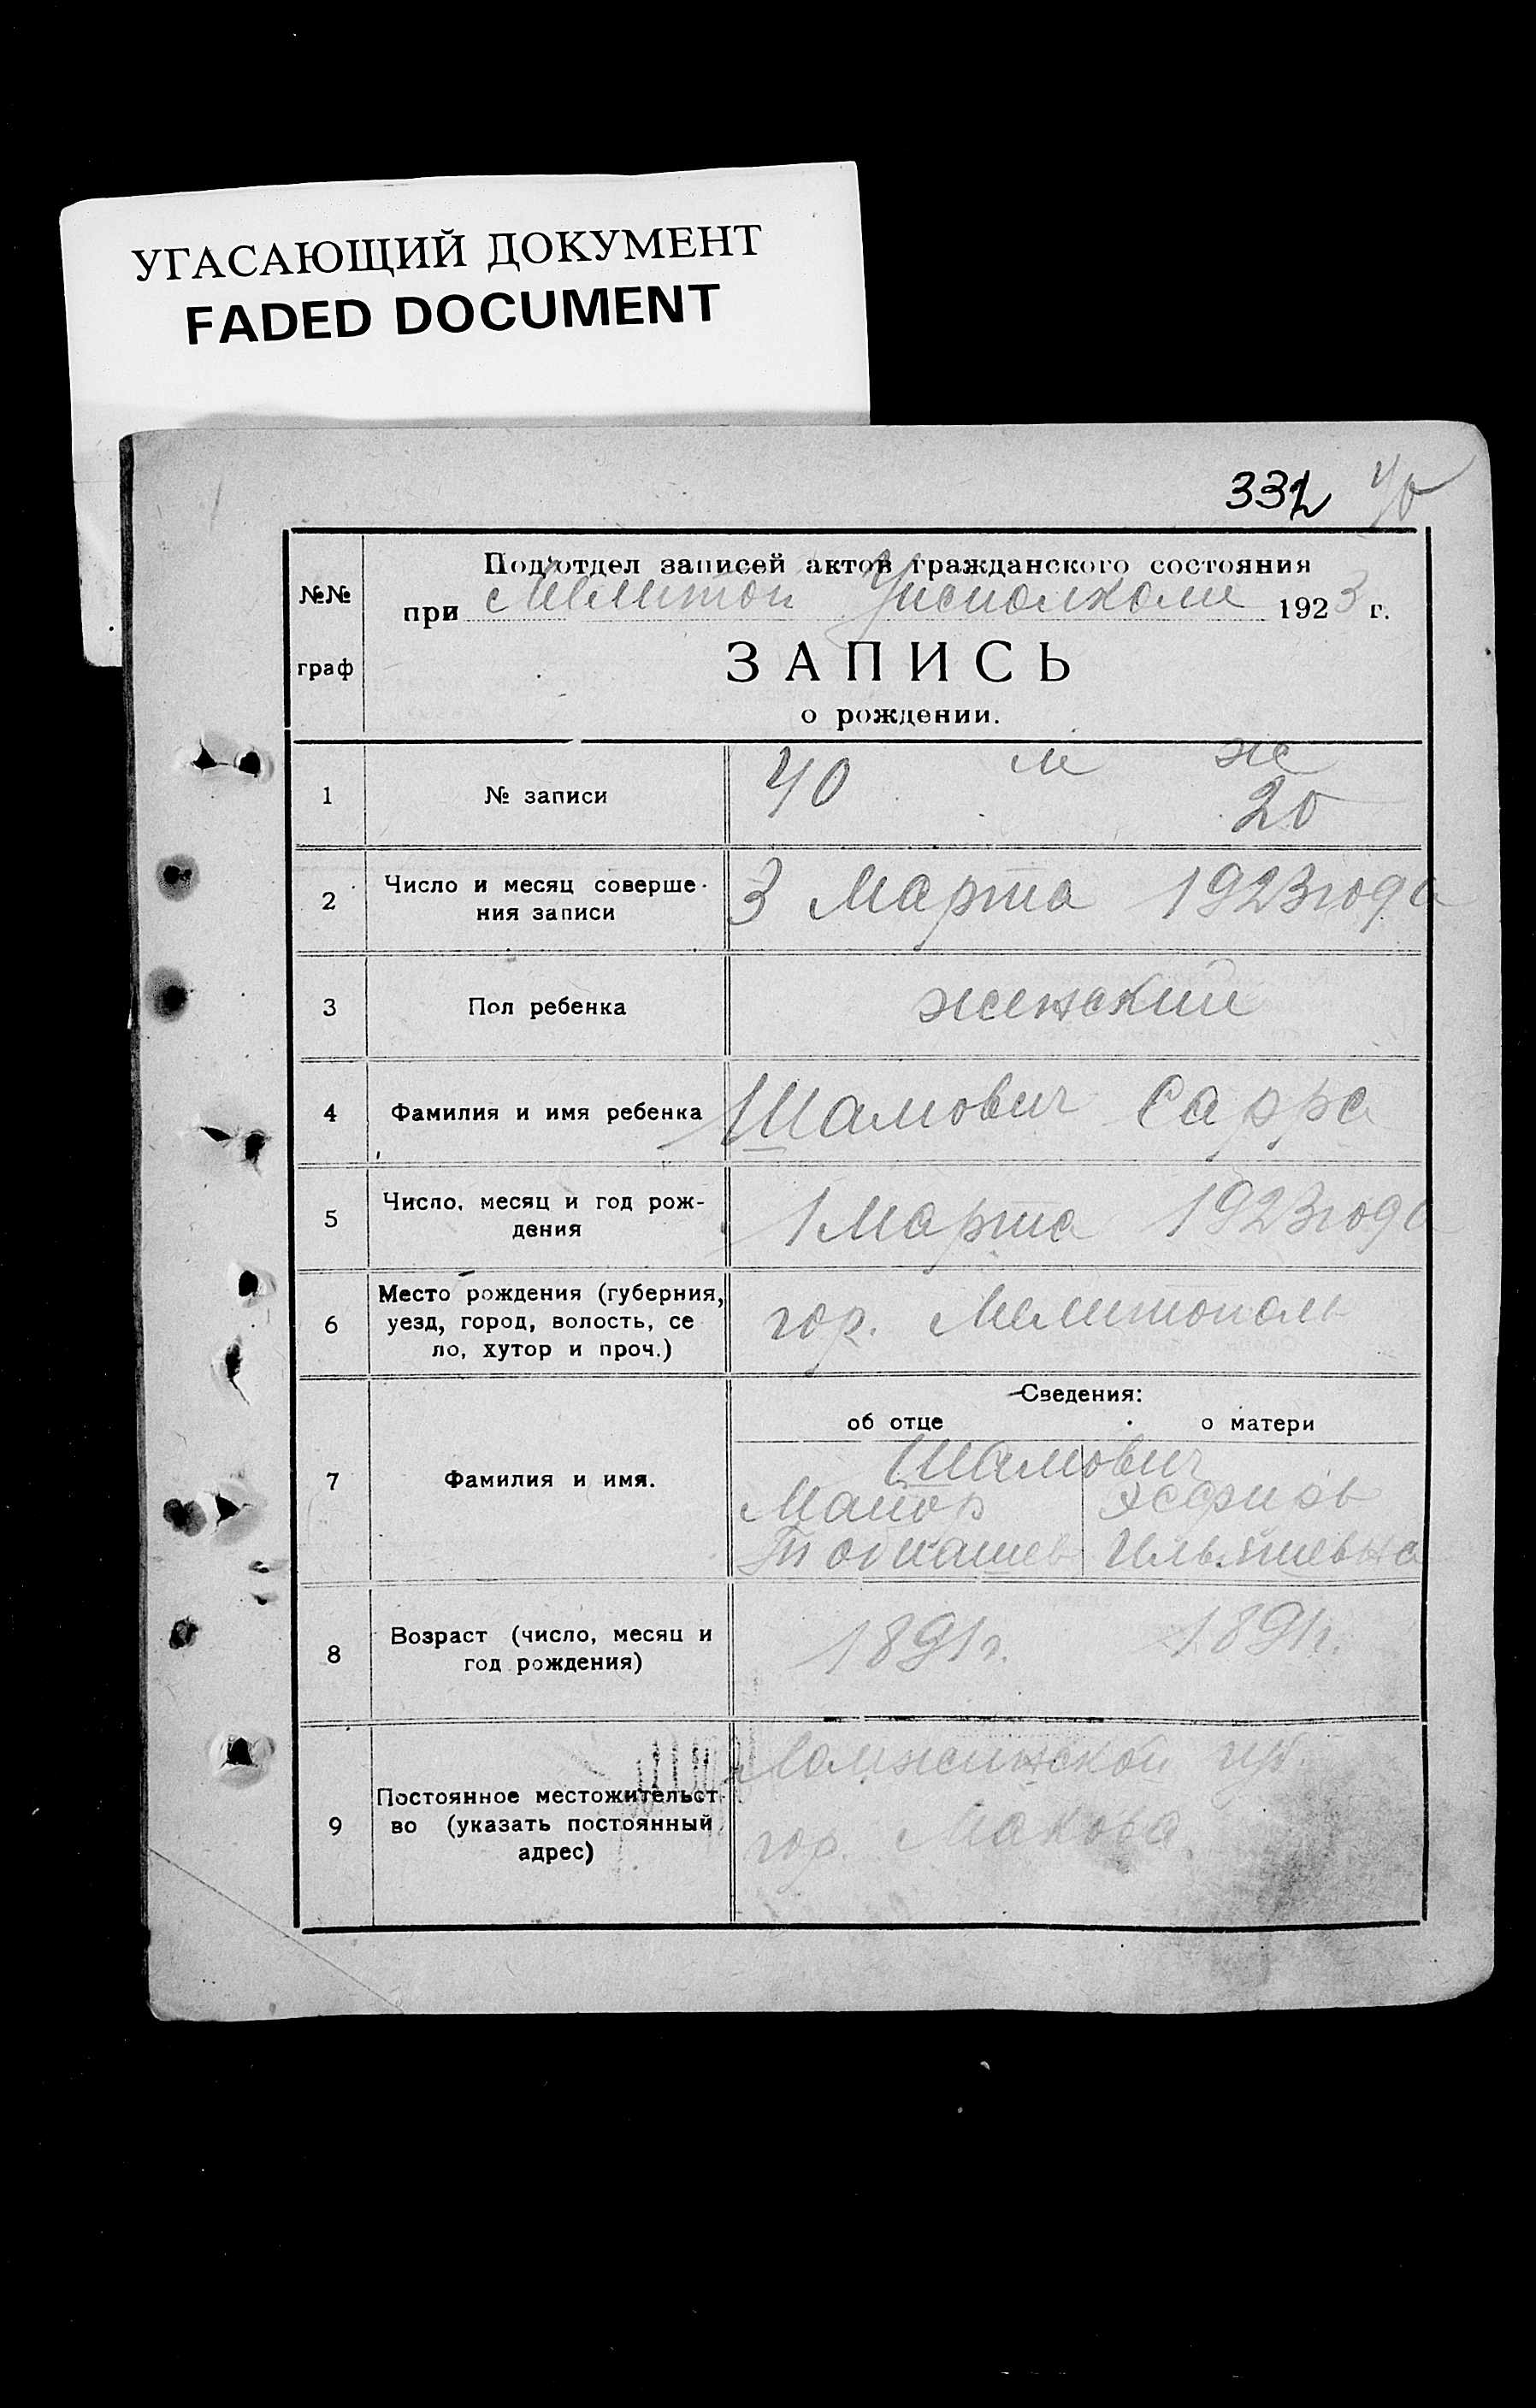 УГАСАЮЩИЙ ДОКУМЕНТ
FADED DOCUMENT
332 40
№№
граф
Подотдел записей актов гражданского состояния
при Мелитоп Уисполкоме 1923 г.
ЗАПИСЬ
о рождении.
1 № записи 40 м ж
20
2 Число и месяц соверше-
ния записи
3 Марта 1923 года
3 Пол ребенка женский
4 Фамилия и имя ребенка Шамович Сарра
5 Число, месяц и год рож-
дения
1 Марта 1923 года
6 Место рождения (губерния,
уезд, город, волость, се
ло, хутор и проч.)
гор. Мелитополь
Сведения:
об отце о матери
7 Фамилия и имя.
Шамович
Маиор Эсфирь
1891г. 1891г.
8 Возраст (число, месяц и
год рождения)
9 Постоянное местожительст-
во (указать постоянный
адрес)
Ломжинской губ.
гор. Макова